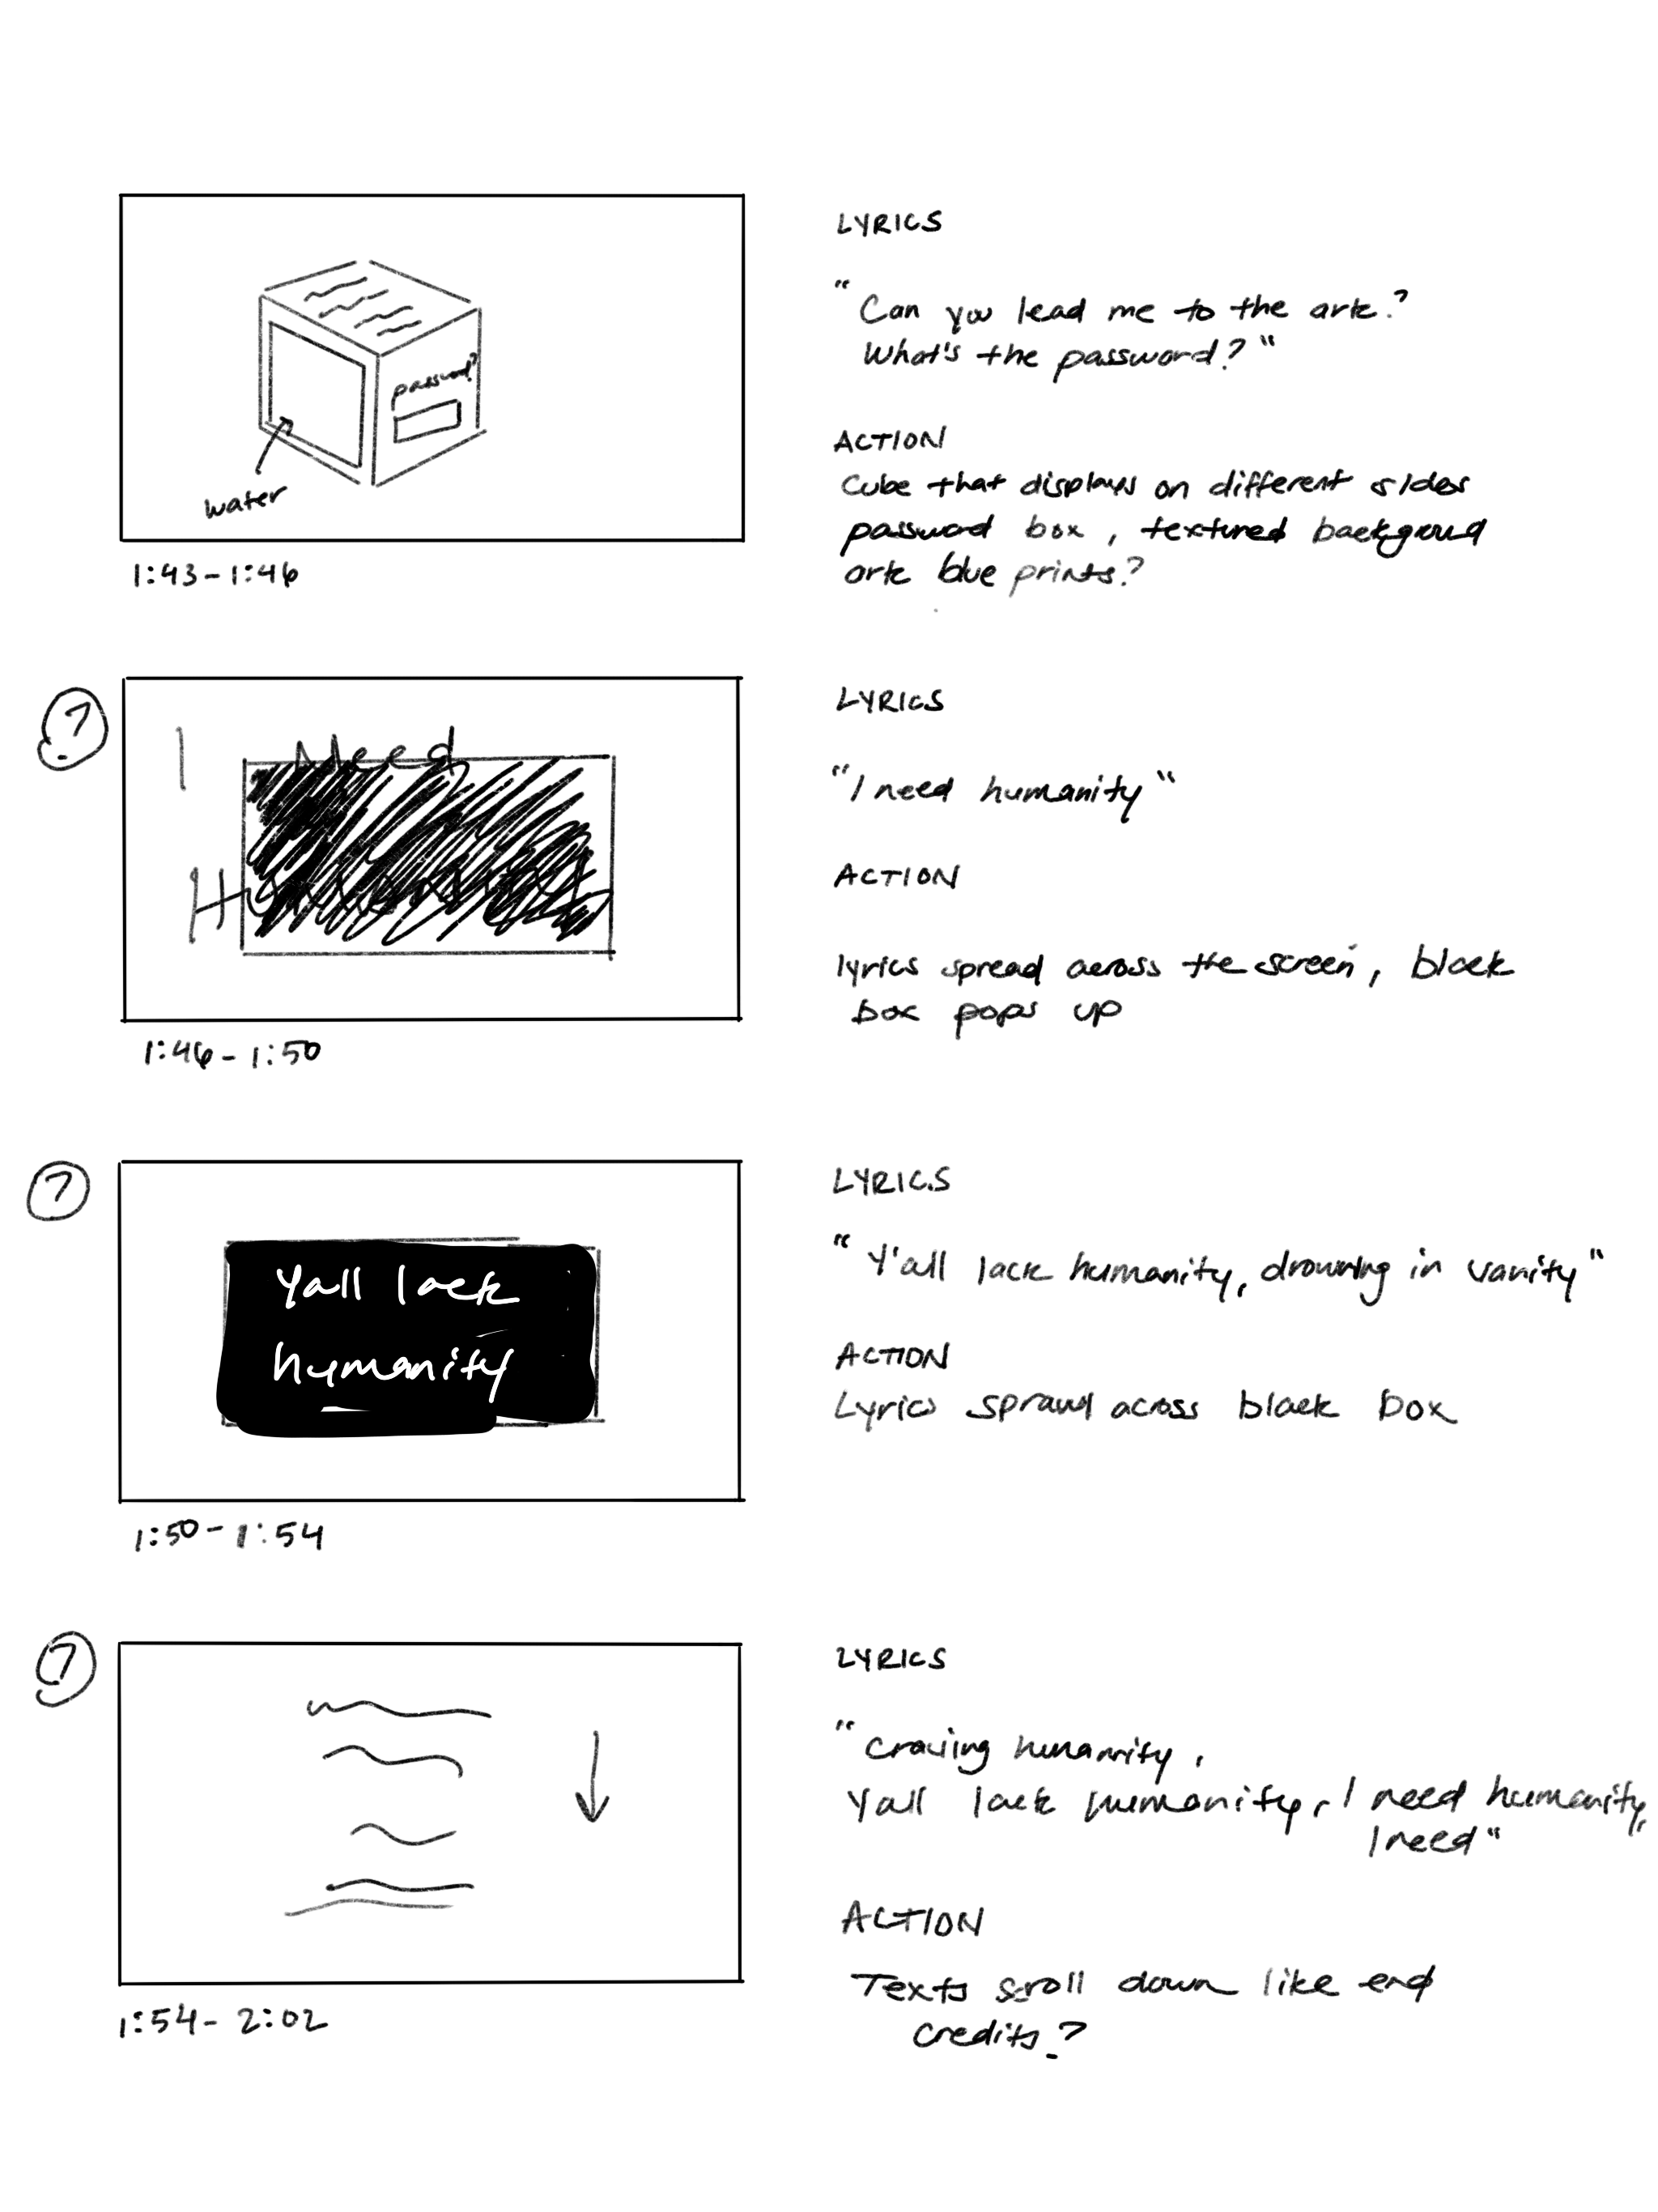 LYRICS
"Can you lead me to the ark?
What's the password?"
password?
water
ACTION
Cube that displays on different sides
password box, textured background
ark blue prints?
1:43-1:46
?
I Need
Humanity
LYRICS
"I need humanity"
ACTION
lyrics spread across the screen, black
box pops up
1:46-1:50
?
Yall lack
humanity
LYRICS
"Y'all lack humanity, drowning in vanity"
ACTION
Lyrics sprawl across black box
1:50-1:54
?
LYRICS
"craving humanity,
Yall lack humanity, I need humanity,
I need"
ACTION
Texts scroll down like end
credits?
1:54-2:02